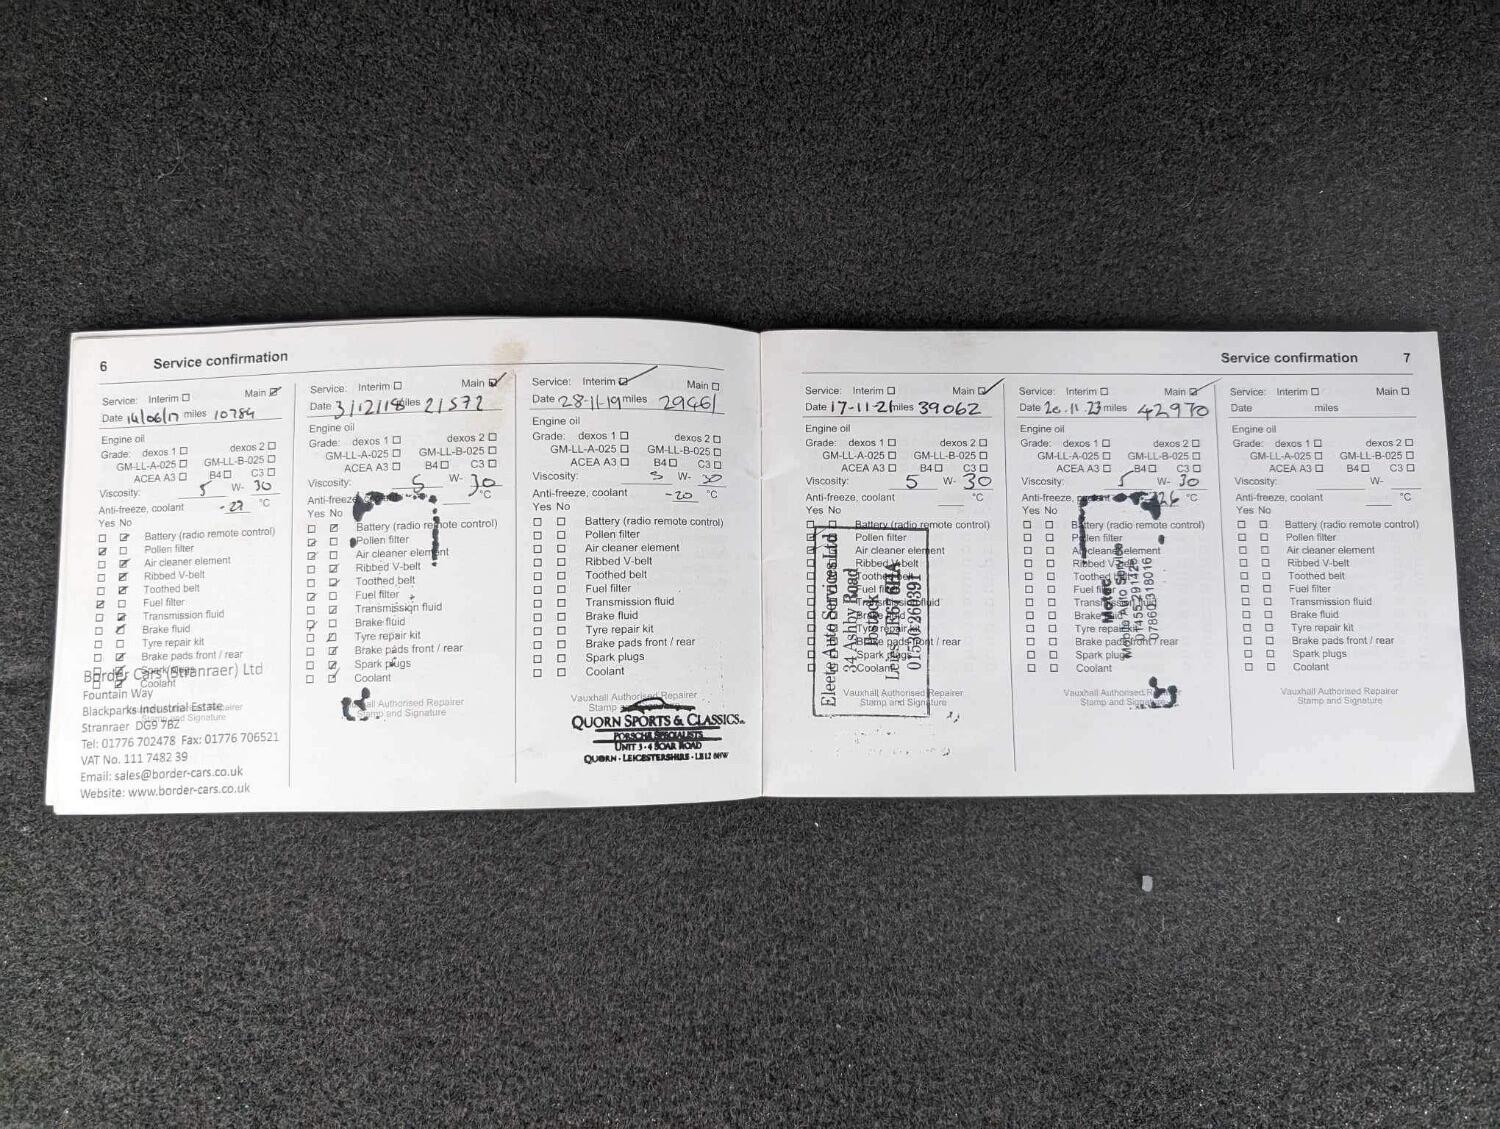 6 Service confirmation
Service: Interim Main
Date 14/06/17 miles 10784
Engine oil
Grade: dexos 1 dexos 2
GM-LL-A-025 GM-LL-B-025
ACEA A3 B4 C3
Viscosity: 5 W- 30
Anti-freeze, coolant -27 °C
Yes No
Battery (radio remote control)
Pollen filter
Air cleaner element
Ribbed V-belt
Toothed belt
Fuel filter
Transmission fluid
Brake fluid
Tyre repair kit
Brake pads front / rear
Spark plugs
Coolant
Border Cars (Stranraer) Ltd
Fountain Way
Blackparks Industrial Estate
Stranraer DG9 7BZ
Tel: 01776 702478 Fax: 01776 706521
VAT No. 111 7482 39
Email: sales@border-cars.co.uk
Website: www.border-cars.co.uk
Stamp and Signature
Service: Interim Main
Date 3/12/18 miles 21572
Engine oil
Grade: dexos 1 dexos 2
GM-LL-A-025 GM-LL-B-025
ACEA A3 B4 C3
Viscosity: 5 W- 30
Anti-freeze °C
Yes No
Battery (radio remote control)
Pollen filter
Air cleaner element
Ribbed V-belt
Toothed belt
Fuel filter
Transmission fluid
Brake fluid
Tyre repair kit
Brake pads front / rear
Spark plugs
Coolant
Authorised Repairer
Stamp and Signature
Service: Interim Main
Date 28-11-19 miles 29461
Engine oil
Grade: dexos 1 dexos 2
GM-LL-A-025 GM-LL-B-025
ACEA A3 B4 C3
Viscosity: 5 W- 30
Anti-freeze, coolant -20 °C
Yes No
Battery (radio remote control)
Pollen filter
Air cleaner element
Ribbed V-belt
Toothed belt
Fuel filter
Transmission fluid
Brake fluid
Tyre repair kit
Brake pads front / rear
Spark plugs
Coolant
Vauxhall Authorised Repairer
Stamp
QUORN SPORTS & CLASSICS
PORSCHE SPECIALISTS
UNIT 3-4 SOAR ROAD
QUORN - LEICESTERSHIRE - LE12 8HW
Service confirmation 7
Service: Interim Main
Date 17-11-21 miles 39062
Engine oil
Grade: dexos 1 dexos 2
GM-LL-A-025 GM-LL-B-025
ACEA A3 B4 C3
Viscosity: 5 W- 30
Anti-freeze, coolant °C
Yes No
Battery (radio remote control)
Pollen filter
Air cleaner element
Ribbed V-belt
Toothed belt
Fuel filter
Transmission fluid
Brake fluid
Tyre repair kit
Brake pads front / rear
Spark plugs
Coolant
Vauxhall Authorised Repairer
Stamp and Signature
Auto Services Ltd
34 Ashby Road
Ibstock
Leics LE67 6HA
01530 260391
Service: Interim Main
Date 20.11.23 miles 42970
Engine oil
Grade: dexos 1 dexos 2
GM-LL-A-025 GM-LL-B-025
ACEA A3 B4 C3
Viscosity: 5 W- 30
Anti-freeze, -26 °C
Yes No
Battery (radio remote control)
Pollen filter
Air cleaner element
Ribbed V-belt
Toothed belt
Fuel filter
Transmission fluid
Brake fluid
Tyre repair kit
Brake pads front / rear
Spark plugs
Coolant
Vauxhall Authorised
Stamp and
Mobile Auto Service
01455 291426
Service: Interim Main
Date miles
Engine oil
Grade: dexos 1 dexos 2
GM-LL-A-025 GM-LL-B-025
ACEA A3 B4 C3
Viscosity: W-
Anti-freeze, coolant °C
Yes No
Battery (radio remote control)
Pollen filter
Air cleaner element
Ribbed V-belt
Toothed belt
Fuel filter
Transmission fluid
Brake fluid
Tyre repair kit
Brake pads front / rear
Spark plugs
Coolant
Vauxhall Authorised Repairer
Stamp and Signature